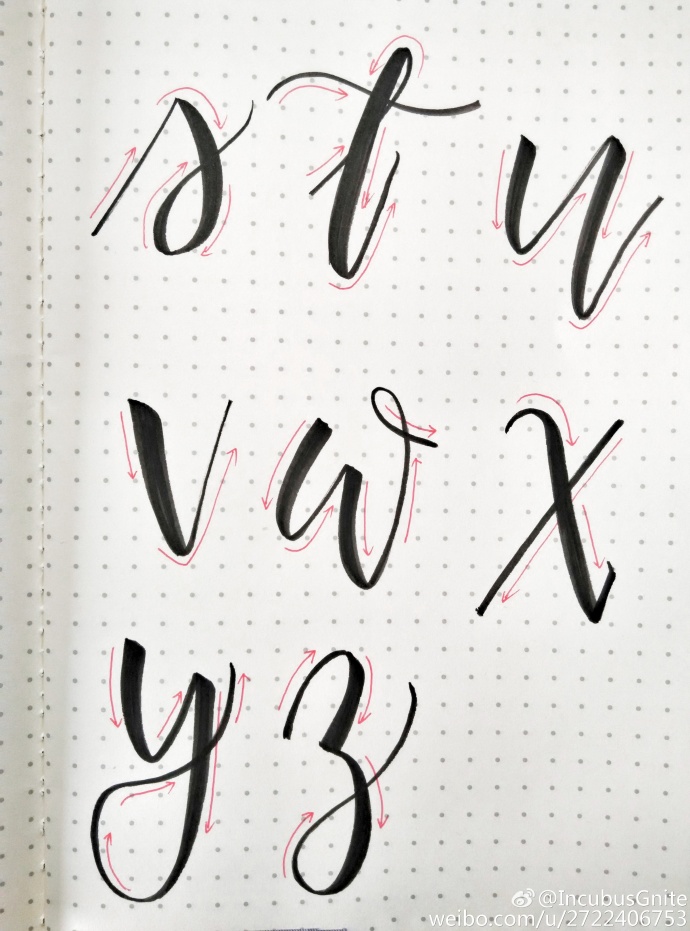 s t u
v w x
y z
@IncubusGnite
weibo.com/u/2722406753